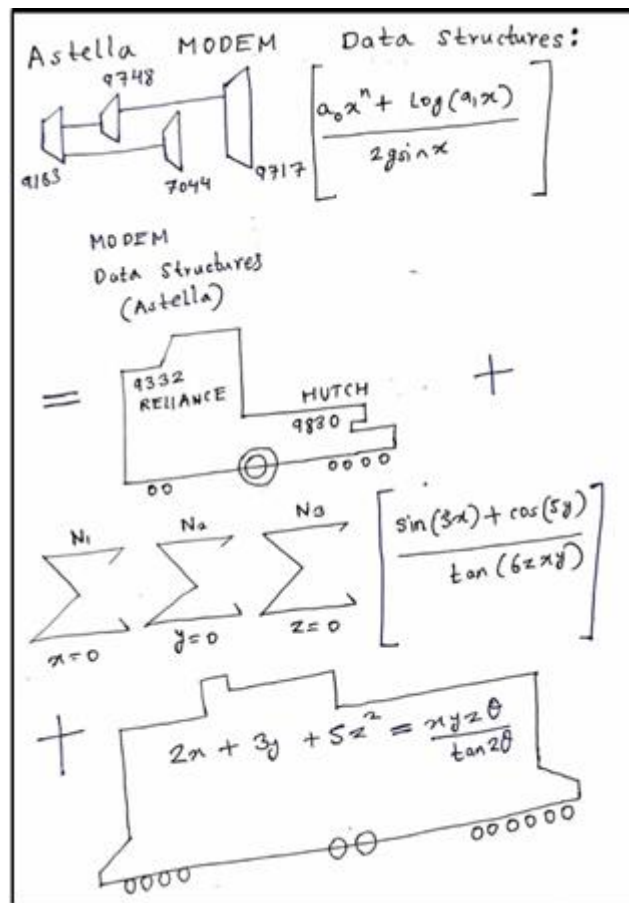 Astella MODEM Data structures:
9748
9163 7044 9717
[a₀xⁿ + log(a₁x) / 2gsinx]
MODEM
Data Structures
(Astella)
= 9332 HUTCH +
RELIANCE 9830
N₁ N₂ N₃
Σ Σ Σ [sin(3x) + cos(5y) / tan(6zxy)]
x=0 y=0 z=0
+ 2x + 3y + 5z² = xyzθ / tan2θ